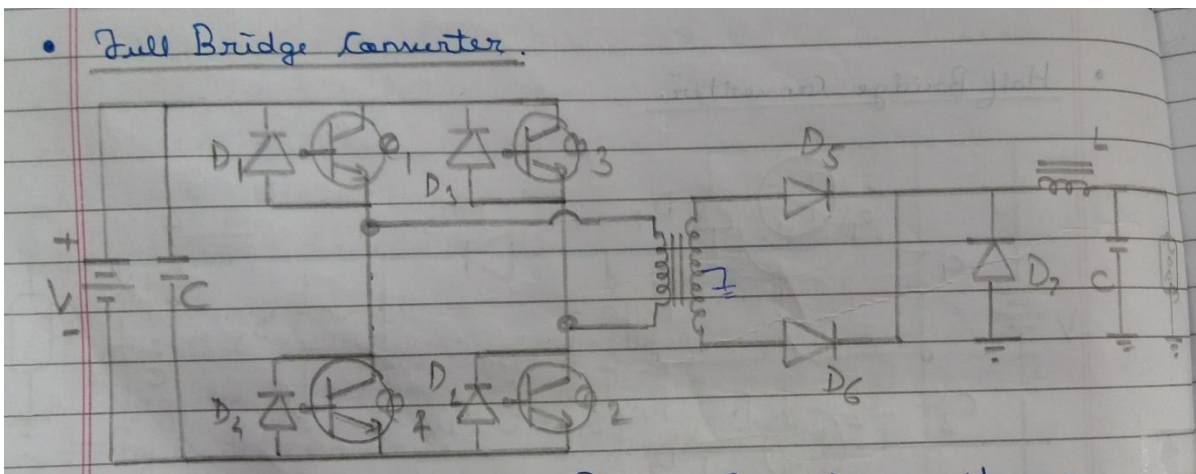 • Full Bridge Converter.
D1 Q1 D3 Q3
D5 L
+
V
-
C
D7 C
D6
D4 Q4 D2 Q2